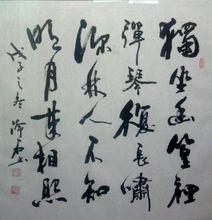 獨坐幽篁裡
彈琴復長嘯
深林人不知
明月來相照
戊子之春